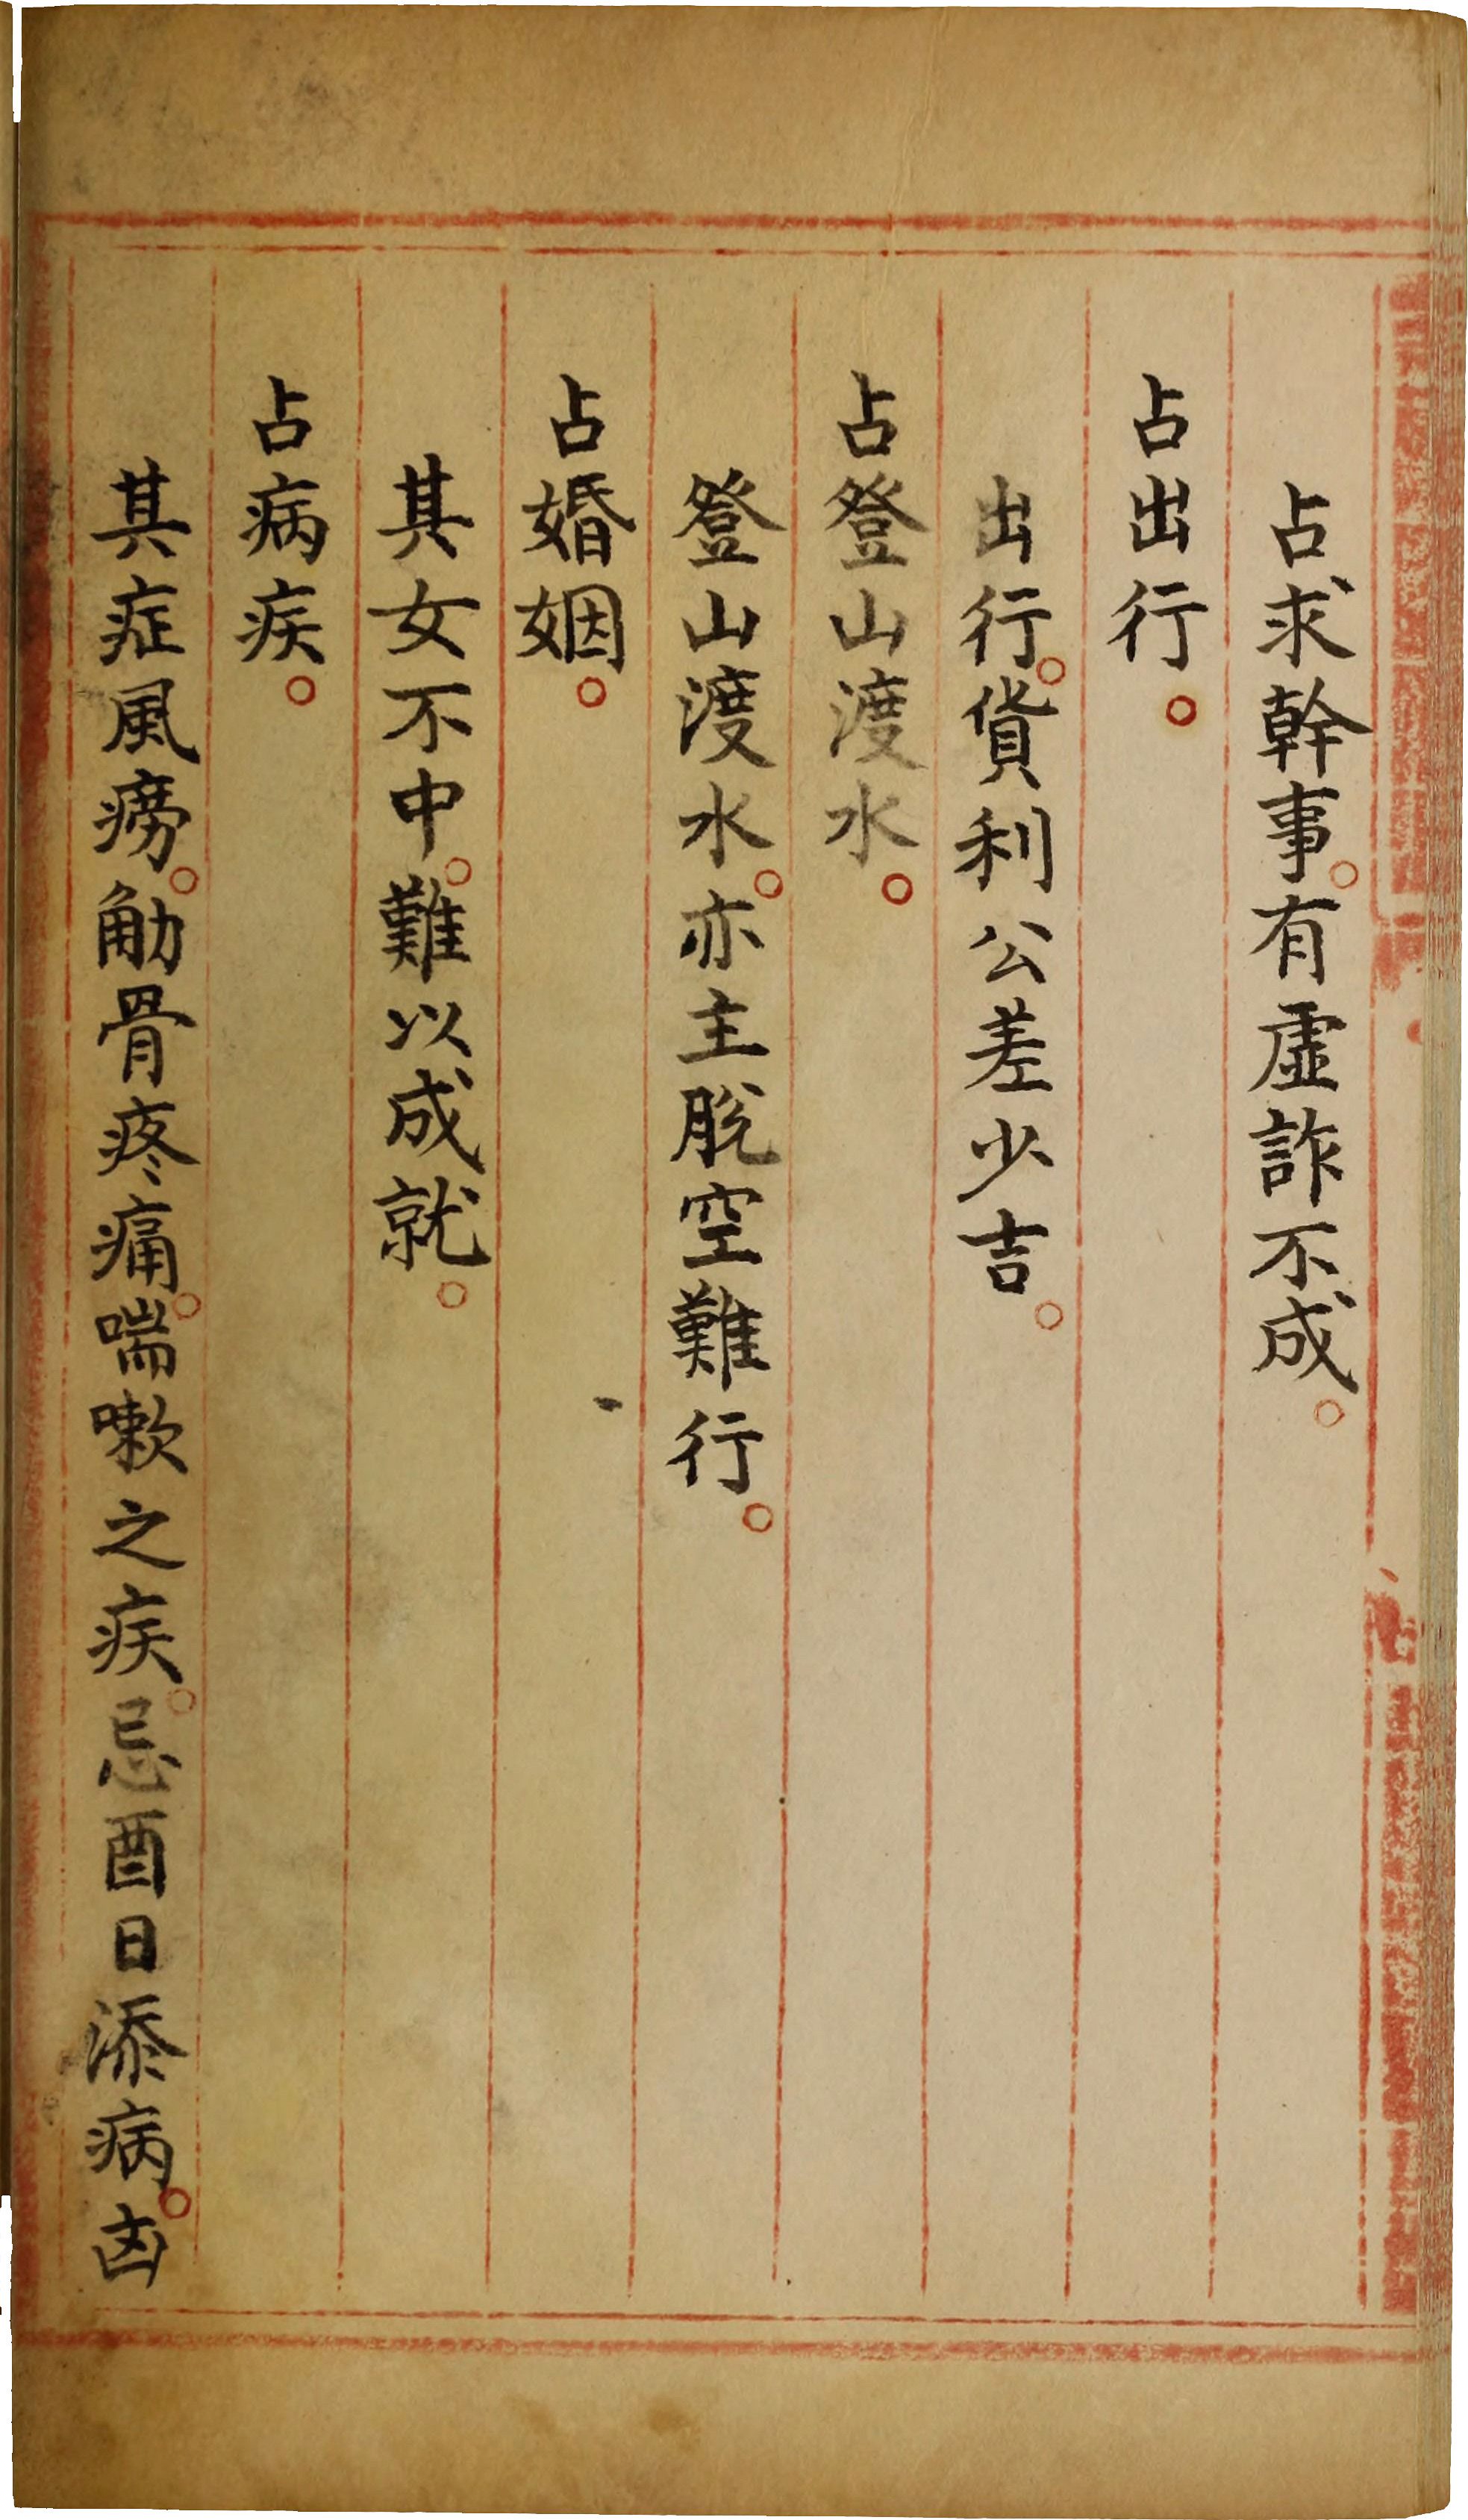 占求幹事。有虛詐不成。
占出行。
出行。貨利公差少吉。
占登山渡水。
登山渡水。亦主脫空難行。
占婚姻。
其女不中。難以成就。
占病疾。
其症風癆。觔骨疼痛。喘嗽之疾。忌酉日添病。凶